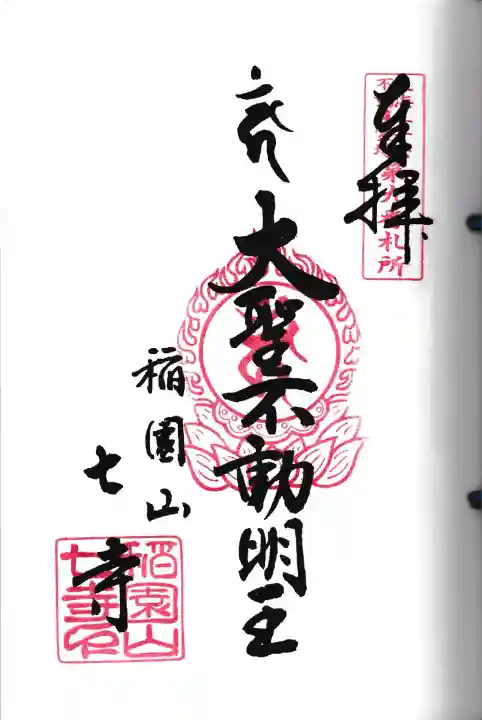 奉拝
第九番札所
大聖不動明王
稲園山
七寺
稲園山
七寺印